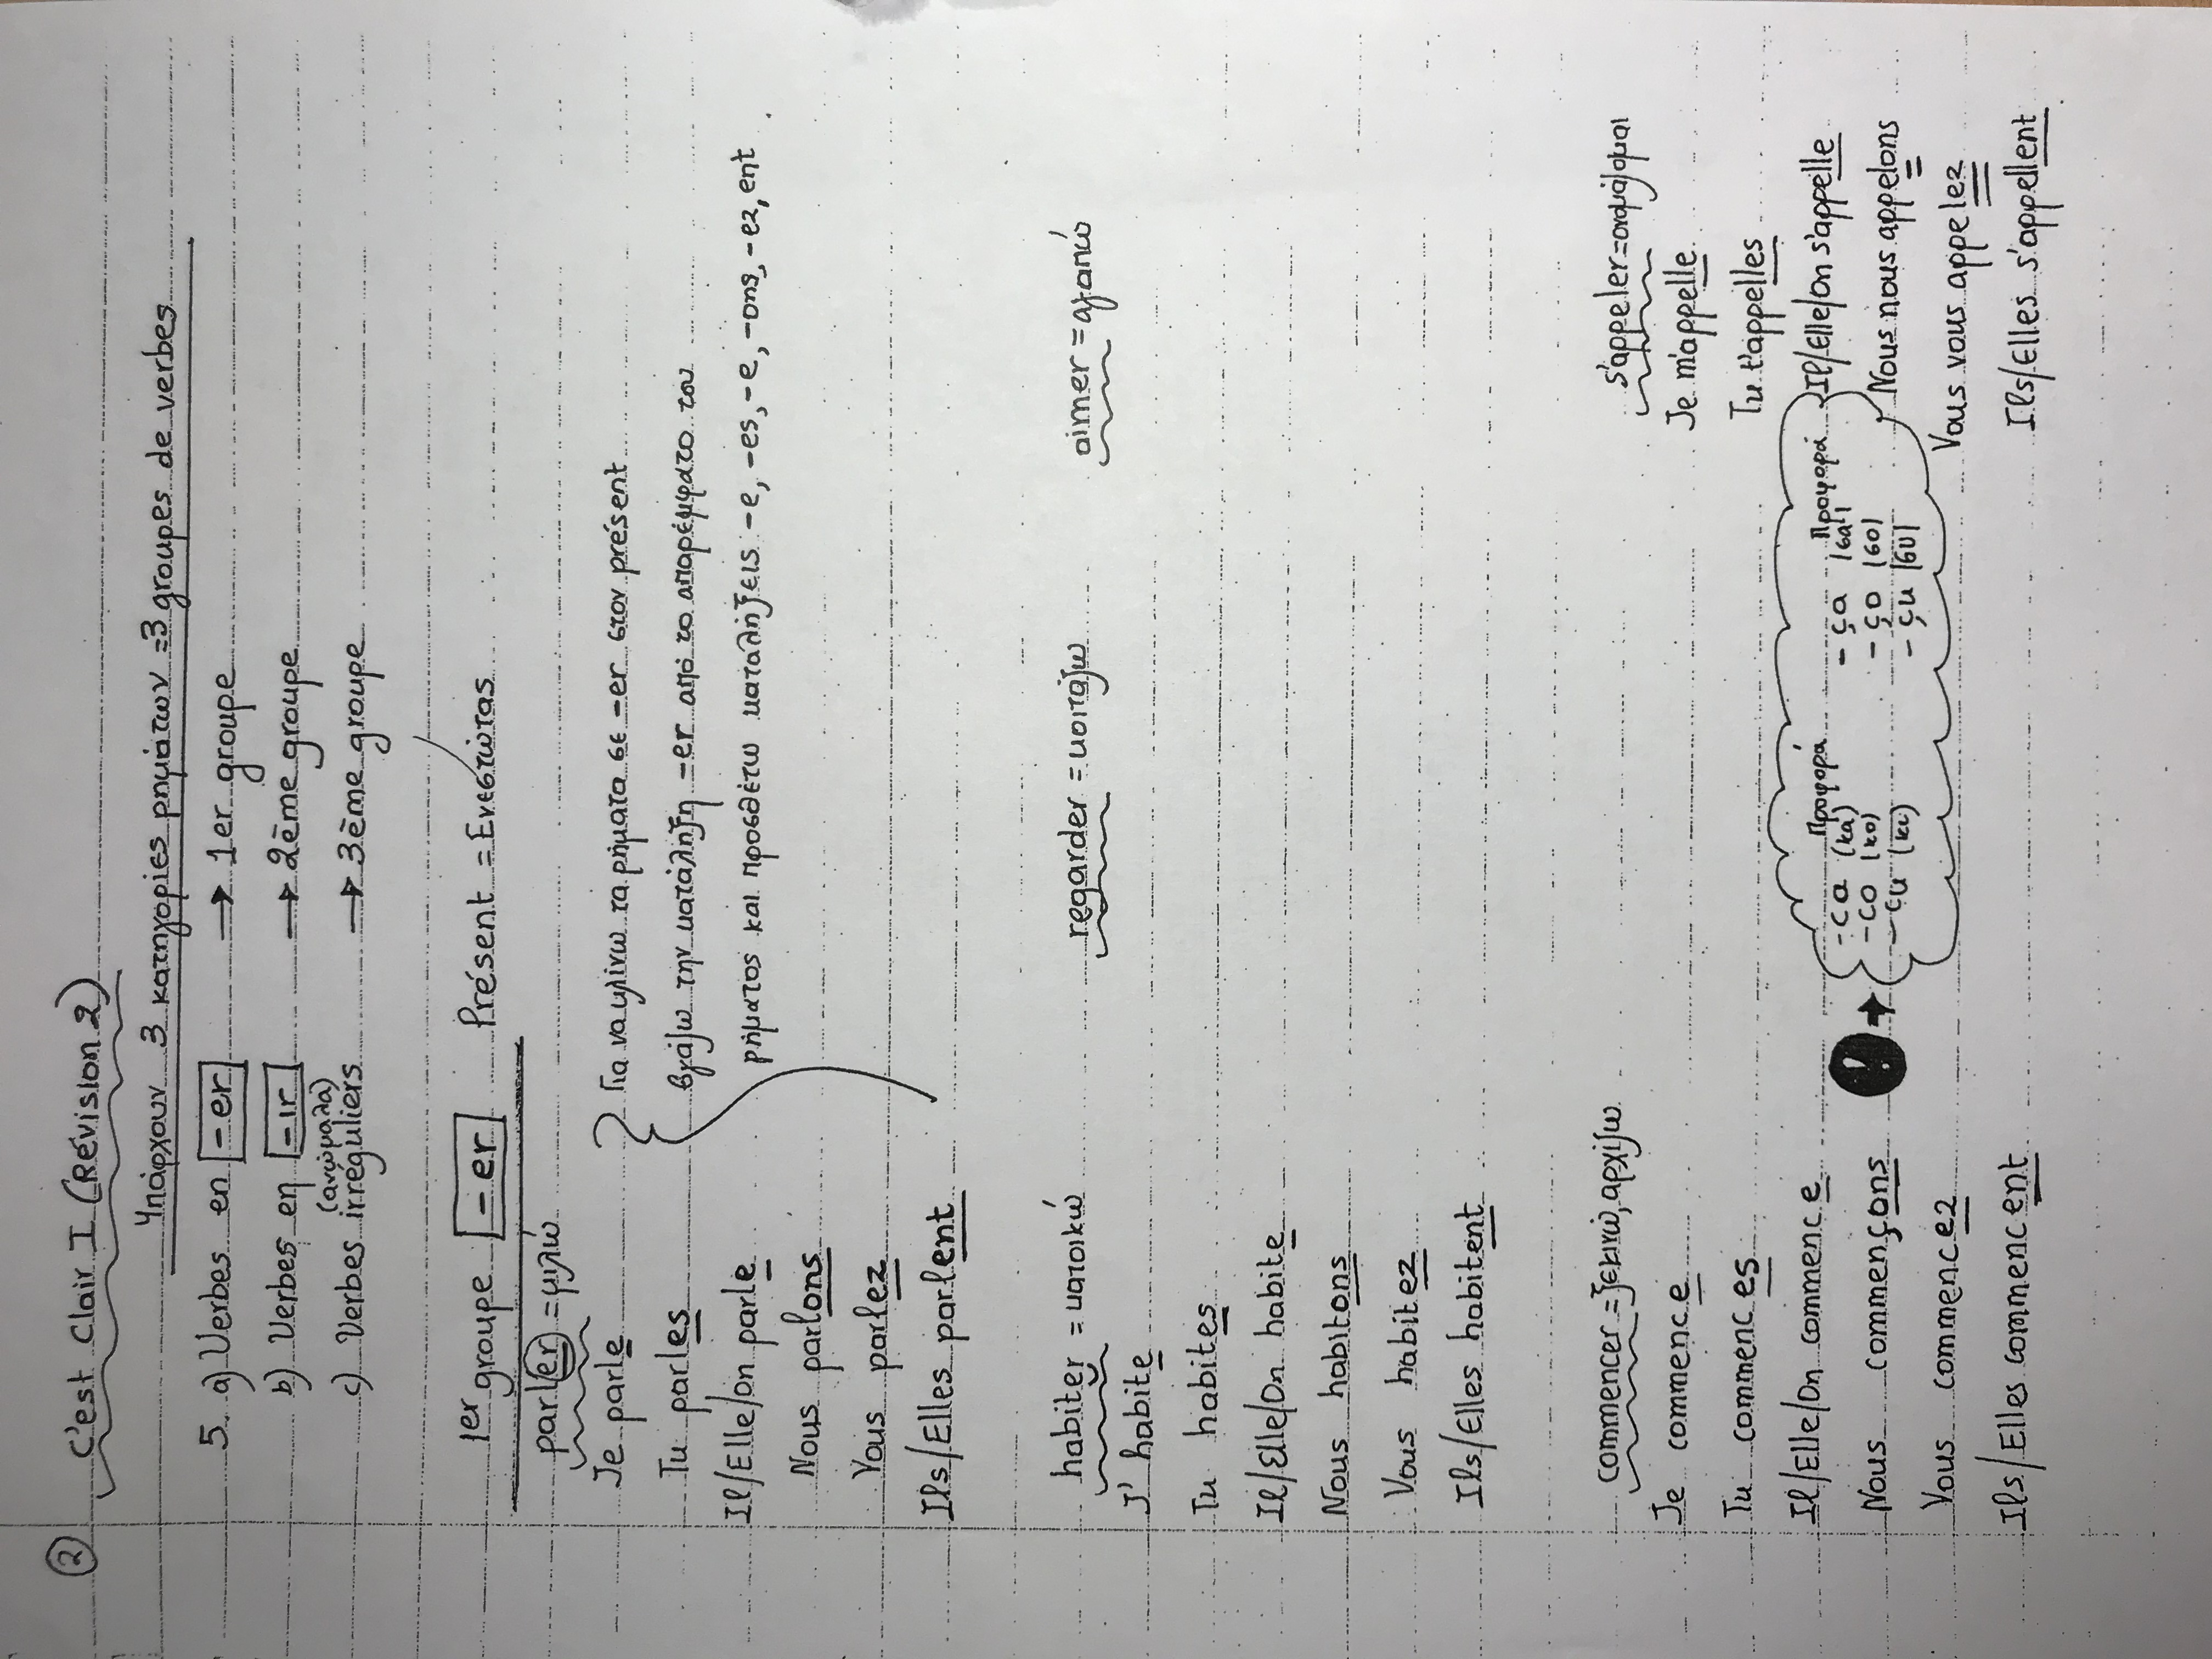 ②
C'est Clair I (Révision 2)
Υπάρχουν 3 κατηγορίες ρημάτων = 3 groupes de verbes
5. a) Verbes en -er → 1er groupe
b) Verbes en -ir → 2ème groupe
(ανώμαλα)
c) Verbes irréguliers → 3ème groupe
1er groupe -er Présent = Ενεστώτας
parler = μιλώ
Je parle
Tu parles
Il/Elle/on parle
Nous parlons
Vous parlez
Ils/Elles parlent
Για να κλίνω τα ρήματα σε -er στον présent
βγάζω την κατάληξη -er από το απαρέμφατο του
ρήματος και προσθέτω καταλήξεις -e, -es, -e, -ons, -ez, ent.
habiter = κατοικώ
J' habite
Tu habites
Il/Elle/On habite
Nous habitons
Vous habitez
Ils/Elles habitent
regarder = κοιτάζω
aimer = αγαπώ
commencer = ξεκινώ, αρχίζω
Je commence
Tu commences
Il/Elle/On commence
Nous commençons
Vous commencez
Ils/Elles commencent
! →
Προφορά
- ca (κα)
- co (κο)
- cu (κι)
Προφορά
- ça (σα)
- ço (σο)
- çu (συ)
s'appeler = ονομάζομαι
Je m'appelle
Tu t'appelles
Il/Elle/on s'appelle
Nous nous appelons
Vous vous appelez
Ils/Elles s'appellent